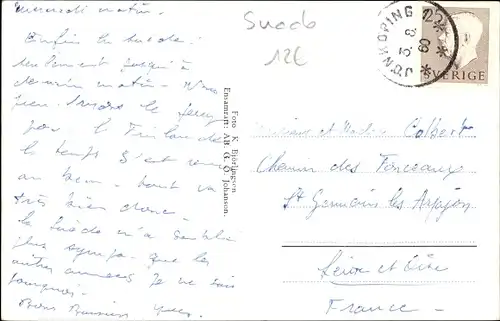 Mercredi matin.
Enfin la Suède.
seulement jusqu'à
demain matin.
par la Finlande
le temps s'est remis
au beau - tout va
très bien donc.
la Suède m'a semblé
plus sympa. que les
autres années je ne sais
pourquoi.
Bons Baisers Yves.
Suede
12€
Foto K. Björlingson
Ensamrätt: AB. G. O. Johanson.
JÖNKÖPING 22
5. 8. 60
SVERIGE
Colbert
Chemin des Fonceaux
St Germain les Arpajon
Seine et Oise
France